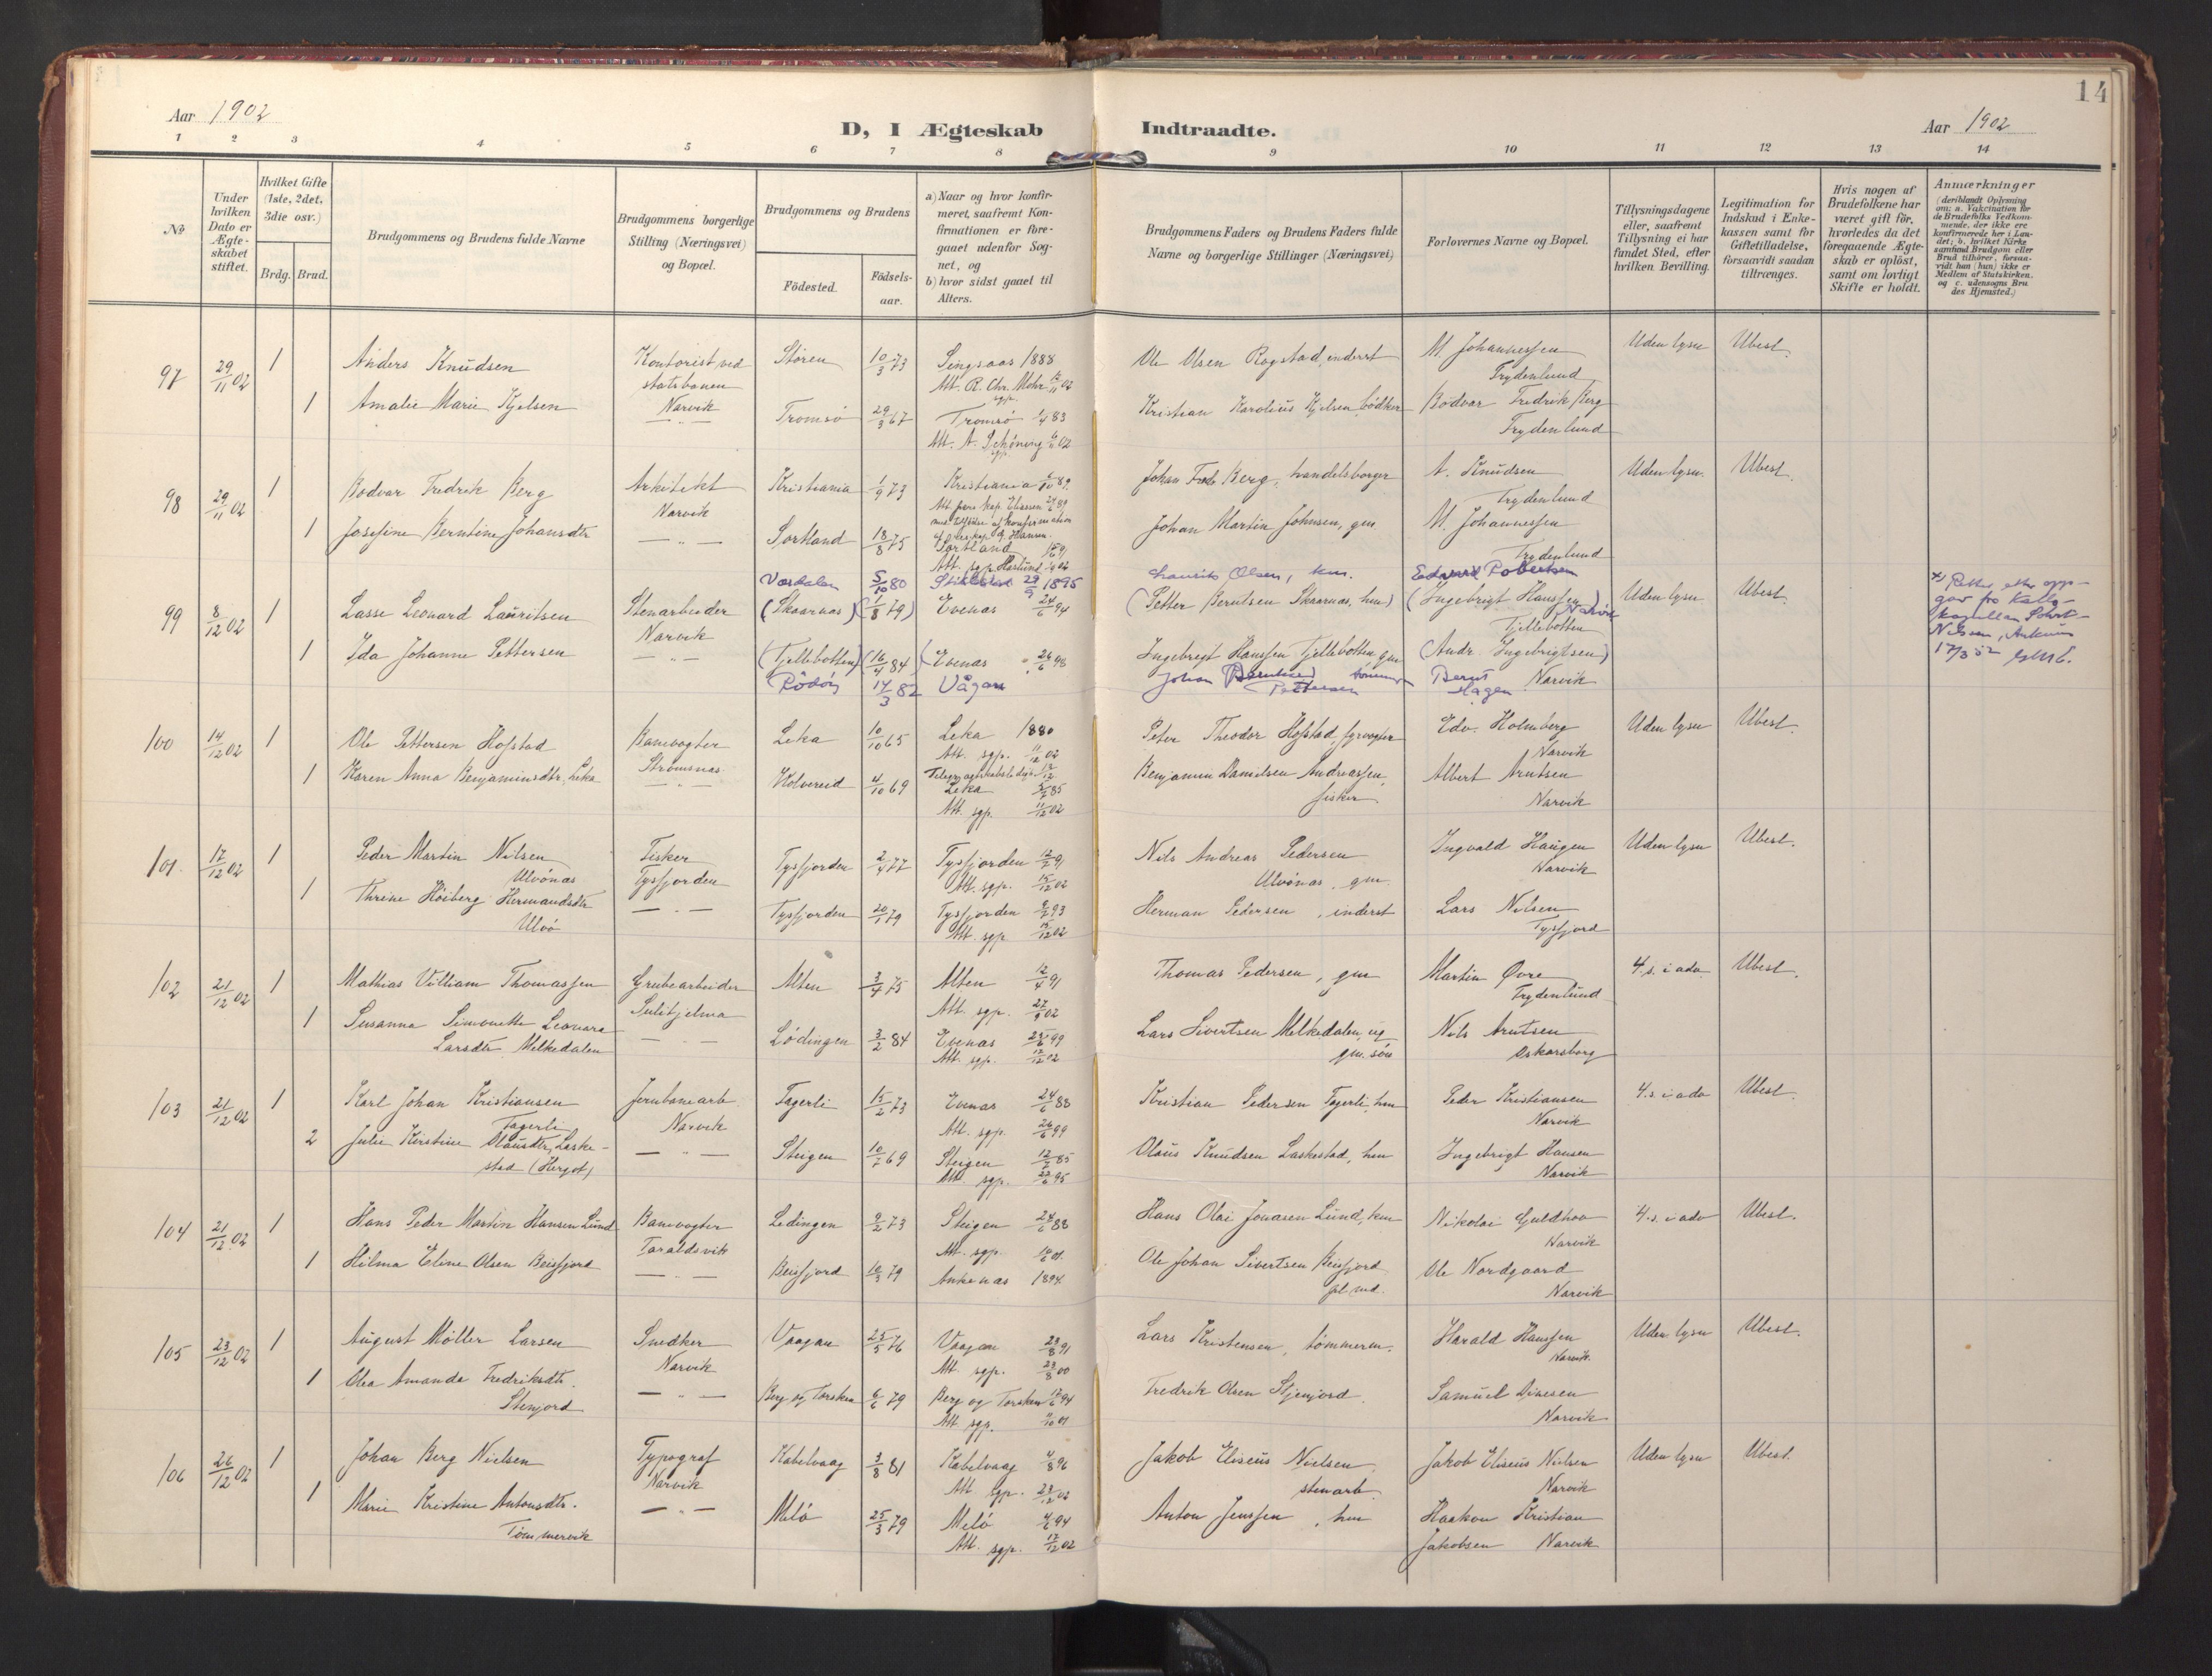 14
Aar 1902
D, I Ægteskab Indtraadte.
Aar 1902
1 2 3 4 5 6 7 8 9 10 11 12 13 14
No
Under hvilken Dato er Ægte-skabet stiftet.
Hvilket Gifte (1ste, 2det, 3die osv.)
Brdg. Brud.
Brudgommens og Brudens fulde Navne
Brudgommens borgerlige Stilling (Næringsvei) og Bopæl.
Brudgommens og Brudens
Födested.
Födsels-aar.
a) Naar og hvor konfir-meret, saafremt Kon-firmationen er fore-gaaet udenfor Sog-net, og
b) hvor sidst gaaet til Alters.
Brudgommens Faders og Brudens Faders fulde Navne og borgerlige Stillinger (Næringsvei)
Forlovernes Navne og Bopæl.
Tillysningsdagene eller, saafremt Tillysning ei har fundet Sted, efter hvilken Bevilling.
Legitimation for Indskud i Enke-kassen samt for Giftetilladelse, forsaavidt saadan tiltrænges.
Hvis nogen af Brudefolkene har været gift för, hvorledes da det foregaaende Ægte-skab er oplöst, samt om lovligt Skifte er holdt.
Anmærkninger (deriblandt Oplysning om: a. Vakcination for de Brudefolks Vedkom-mende, der ikke ere konfirmerede her i Lan-det; b. hvilket Kirke samfund Brudgom eller Brud tilhörer, forsaa-vidt han (hun) ikke er Medlem af Statskirken, og c. udensogns Bru des Hjemsted.)
97 29/11 02 1 Anders Knudsen Kontorist ved statsbanen Narvik Stören 10/3 73 Singsaas 1888 Ole Olsen Rogstad, inderst M. Johannessen Frydenlund Uden lysn Ubest.
Att. R. Chr. Mohr
1 Amalie Marie Kjelsen — " — Tromsö 29/3 67 Tromsö 83 Kristian Karolius Kjelsen, bödker Bodvar Fredrik Berg Frydenlund
Att. A. Schöning 02
98 29/11 02 1 Bodvar Fredrik Berg Arkitekt Narvik Kristiania 1/9 73 Kristiania 89 Johan Fredr Berg, handelsborger A. Knudsen Frydenlund Uden lysn. Ubest.
1 Josefine Berntine Johansdtr — " — Sortland 18/8 75 Sortland Johan Martin Johnsen, gm. M. Johannessen Frydenlund
Værdalen 5/10 80 Stiklestad 29/9 1895 Laurits Olsen, hm. Edvard Robertsen
99 8/12 02 1 Lasse Leonard Lauritsen Stenarbeider Narvik (Skaarnas) (1/8 79) Evenas 24/6 94 (Petter Berntsen Skaarnas, hm) (Ingebrigt Hanssen) Narvik Fjellebotten Uden lysn Ubest.
1 Ida Johanne Pettersen — " — (Fjellebotten) (16/4 84) (Evenas 26/6 98 Ingebrigt Hanssen Fjellebotten gm (Andr. Ingebrigtsen) Narvik
Rödöy 14/3 82 Vågan Johan Berntsen Pettersen Bernt Hagen
x) Rettet etter opp-gav fra
Nilsen, Ankenes
17/3 52
100 14/12 02 1 Ole Pettersen Hofstad Banevogter Strömsnas Leka 10/10 65 Leka 1880 Peter Theodor Hofstad, fyrvogter Edv. Holmberg Narvik Uden lysn Ubest.
Att. sgp. 11/12 02
1 Karen Anna Benjaminsdtr, Leka — " — Kolvereid 4/10 69 Leka 85 Benjamin Danielsen Andreassen, fisker Albert Arntsen Narvik
Att. sgp. 11/12 02
101. 17/12 02 1 Peder Martin Nilsen Ulvönas Fisker Tysfjorden Tysfjorden 2/4 77 Tysfjorden 12/7 91 Nils Andreas Pedersen Ulvönas, gm. Ingvald Haugen Narvik Uden lysn Ubest.
Att. sgp. 15/12 02
1 Thrine Höiberg Hermandsdtr Ulvö — " — Tysfjorden 20/1 79 Tysfjorden 93 Herman Pedersen, inderst Lars Nilsen Tysfjord
Att. sgp. 15/12 02
102 21/12 02 1 Mathias Villiam Thomassen Grubearbeider Sulitjelma Alten 3/4 75 Alten 12/4 91 Thomas Pedersen, gm Martin Øvre Frydenlund 4. s. i adv. Ubest.
Att. sgp. 27/9 02
1 Susanna Simonette Leonara Larsdtr Melkedalen — " — Lødingen 3/2 84 Evenas 25/6 99 Lars Sivertsen Melkedalen, ug gm. sön Nils Arntsen Oskarsborg
Att. sgp. 17/12 02
103 21/12 02 1 Karl Johan Kristiansen Fagerli Jernbanearb. Narvik Fagerli 15/2 73 Evenas 24/6 88 Kristian Pedersen Fagerli, hm Peder Kristiansen Narvik 4. s. i adv Ubest.
Att. sgp. 26/6 99
2 Julie Kirstine Olausdtr, Laske-stad (Hergot) — " — Steigen 10/7 69 Steigen 12/7 85 Olaus Knudsen Laskestad, hm Ingebrigt Hansen Narvik
Att. sgp. 95
104 21/12 02 1 Hans Peder Martin Hansen Lund Banevogter Taraldsvik Ledingen 9/2 73 Steigen 24/6 88 Hans Olai Jonasen Lund, hm Nikolai Guldhav Narvik 4. s. i adv Ubest.
Att. sgp. 01.
1 Hilma Eline Olsen Beisfjord — " — Beisfjord 10/3 79 Ankenas 1894. Ole Johan Sivertsen Beisfjord Ole Nordgaard Narvik
105 23/12 02 1 August Møller Larsen Snedker Narvik Vaagan 25/5 76 Vaagan 23/8 91 Lars Kristensen, tömmerm. Harald Hanssen Narvik. Uden lysn Ubest.
Att. sgp. 00
1 Olea Amanda Fredriksdtr. Stenjord — " — Berg og Torsken 6/6 79 Berg og Torsken 17/6 94 Fredrik Olsen Stjenjord. Samuel Disesen Narvik
Att. sgp. 01
106 26/12 02 1 Johan Berg Nielsen Typograf Narvik Kabelvaag 3/8 81 Kabelvaag 4/8 96 Jakob Eliseus Nielsen, stenarb. Jakob Eliseus Nielsen Narvik Uden lysn Ubest.
Att. sgp. 23/12 02
1 Marie Kristine Antonsdtr. Tömmervik — " — Melö 25/3 79 Melö 94 Anton Jenssen, hm Haakon Kristian Jakobsen Narvik
Att. sgp. 17/12 02